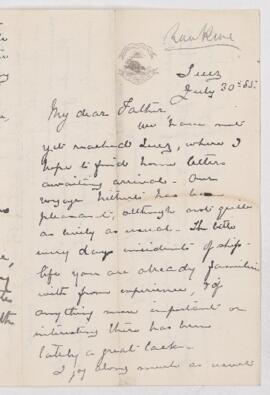 Suez
July 30th 85.
My dear Father.
We have not
yet reached Suez, where I
hope to find some letters
awaiting arrival. Our
voyage hitherto has been
pleasant, although not quite
as lively as usual. The little
every days incidents of ship
life you are already familiar
with from experience, & of
anything more important or
interesting there has been
lately a great lack.
I jog along much as usual
the